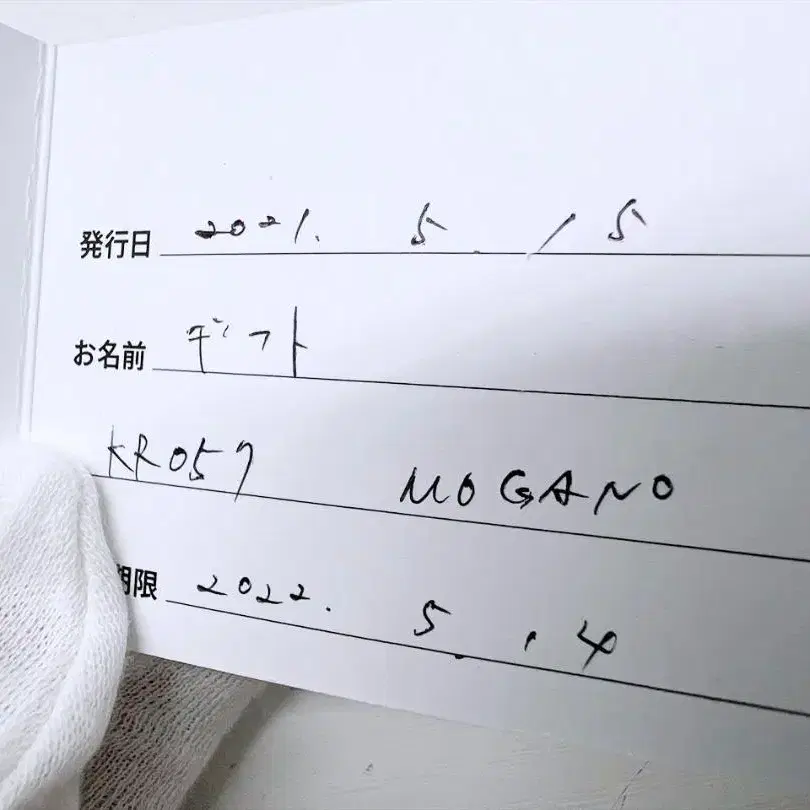 発行日 2021. 5. 15
お名前 ギフト
KR057 MOGANO
期限 2022. 5. 14